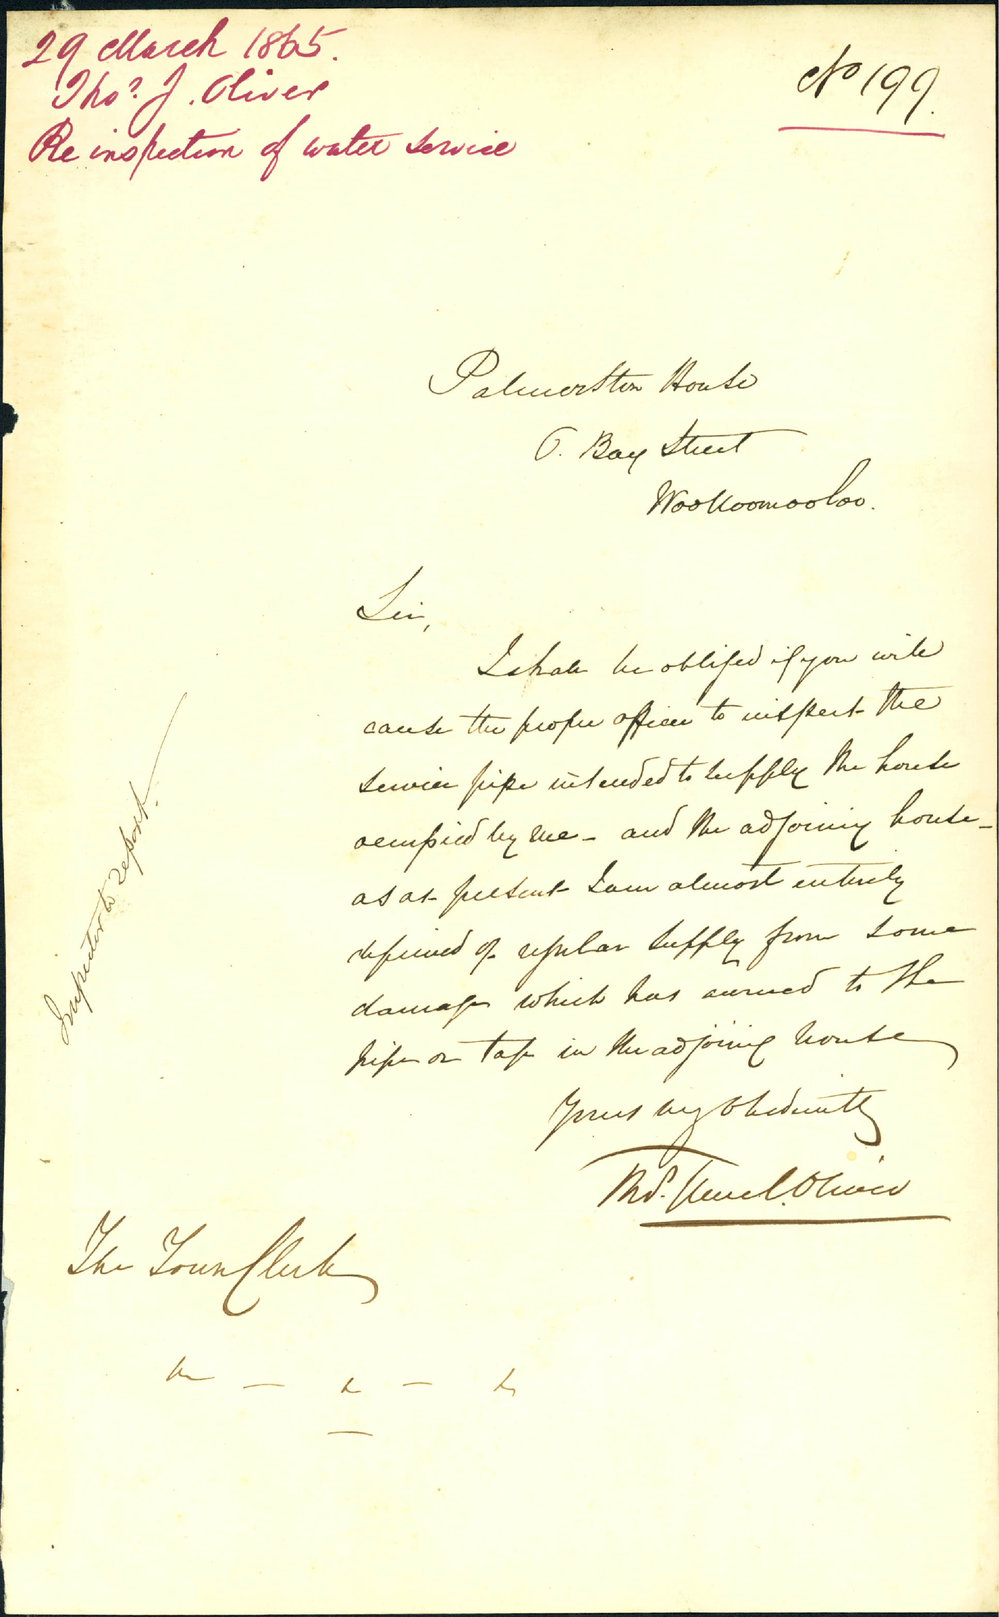 29 March 1865.
Thos. J. Oliver
Re inspection of water service
No 199.
Palmerston House
6. Bay Street
Woolloomooloo.
Sir,
I shall be obliged if you will
cause the proper officer to inspect the
service pipe intended to supply the house
occupied by me - and the adjoining house -
as at present I am almost entirely
deprived of regular supply from some
damage which has accrued to the
pipe or tap in the adjoining house
Yours very obediently
Thos. Oliver
Inspector to report.
The Town Clerk